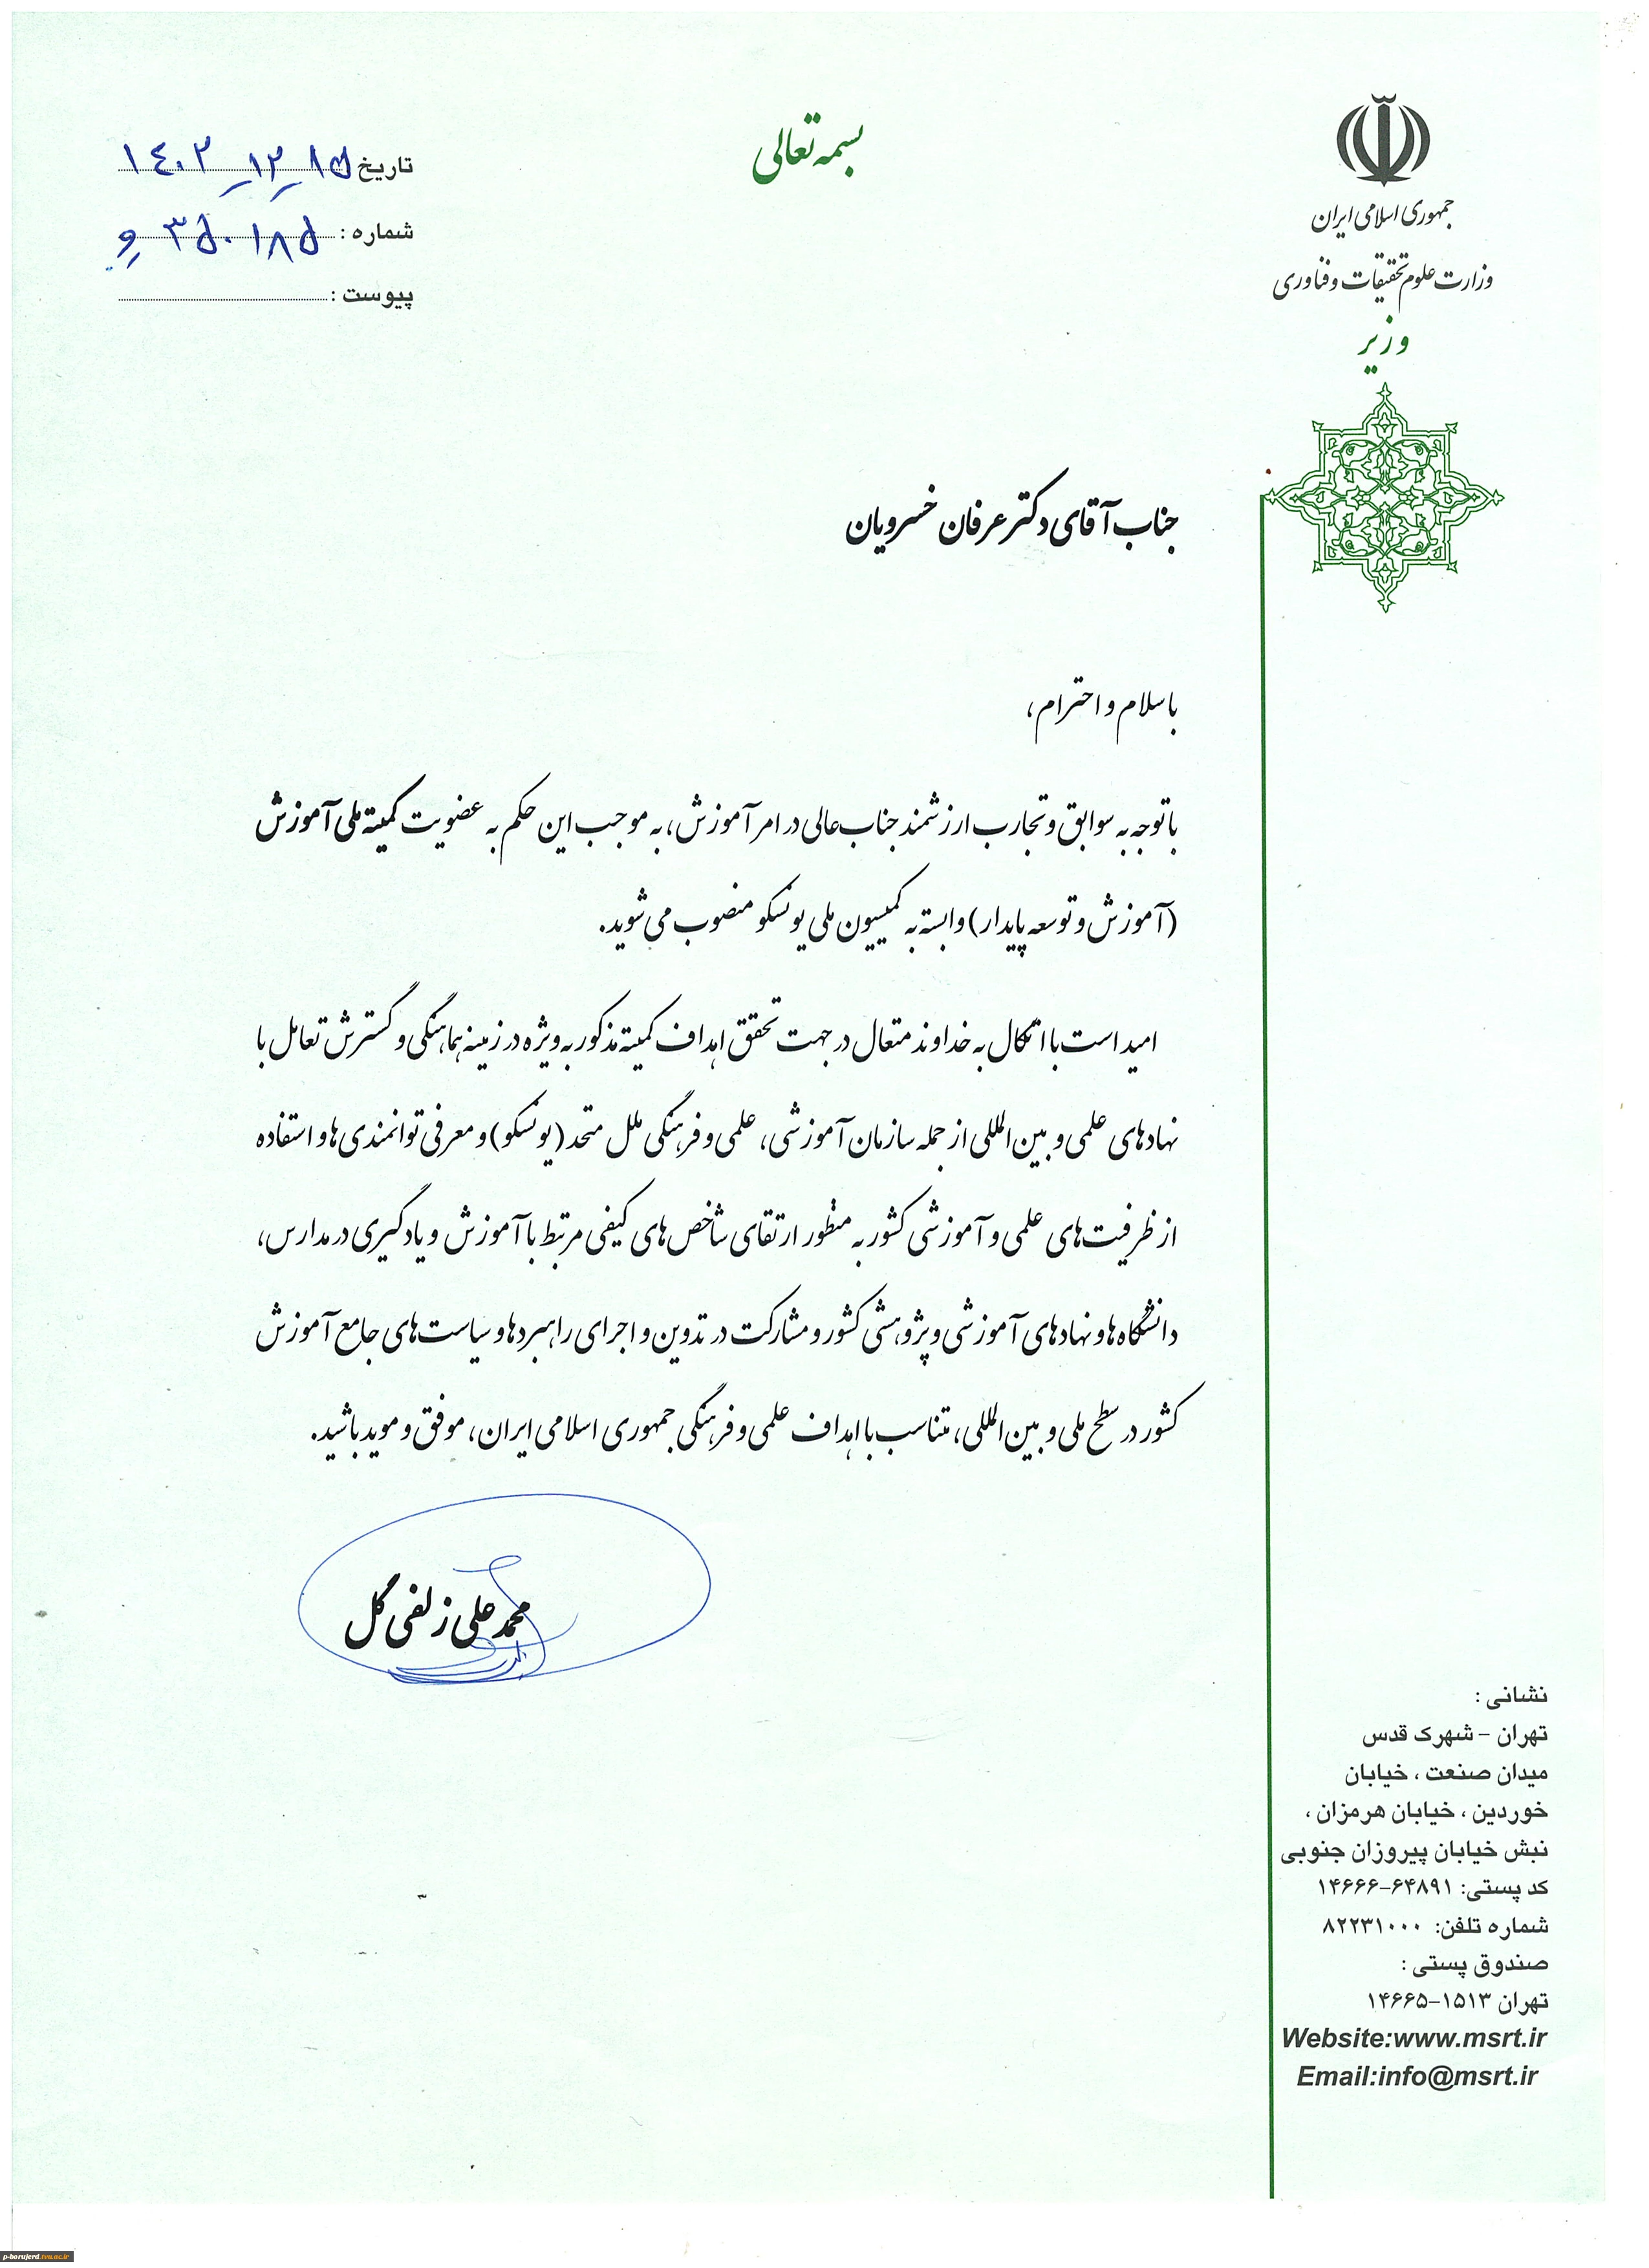 بسمه تعالی
جمهوری اسلامی ایران
وزارت علوم تحقیقات و فناوری
وزیر
تاریخ ۱۴۰۲-۱۲-۱۵
شماره : ۳۵۰۱۸۵ و
پیوست :
جناب آقای دکتر عرفان خسرویان
با سلام و احترام،
با توجه به سوابق و تجارب ارزشمند جناب‌عالی در امر آموزش، به موجب این حکم به عضویت کمیته ملی آموزش
(آموزش و توسعه پایدار) وابسته به کمیسیون ملی یونسکو منصوب می‌شوید.
امید است با اتکال به خداوند متعال در جهت تحقق اهداف کمیته مذکور به ویژه در زمینه هماهنگی و گسترش تعامل با
نهادهای علمی و بین‌المللی از جمله سازمان آموزشی، علمی و فرهنگی ملل متحد (یونسکو) و معرفی توانمندی‌ها و استفاده
از ظرفیت‌های علمی و آموزشی کشور به منظور ارتقای شاخص‌های کیفی مرتبط با آموزش و یادگیری در مدارس،
دانشگاه‌ها و نهادهای آموزشی و پژوهشی کشور و مشارکت در تدوین و اجرای راهبردها و سیاست‌های جامع آموزش
کشور در سطح ملی و بین‌المللی، متناسب با اهداف علمی و فرهنگی جمهوری اسلامی ایران، موفق و موید باشید.
محمدعلی زلفی گل
نشانی :
تهران – شهرک قدس
میدان صنعت ، خیابان
خوردین ، خیابان هرمزان ،
نبش خیابان پیروزان جنوبی
کد پستی: ۶۴۸۹۱-۱۴۶۶۶
شماره تلفن: ۸۲۲۳۱۰۰۰
صندوق پستی :
تهران ۱۵۱۳-۱۴۶۶۵
Website:www.msrt.ir
Email:info@msrt.ir
p-borujerd.tvu.ac.ir